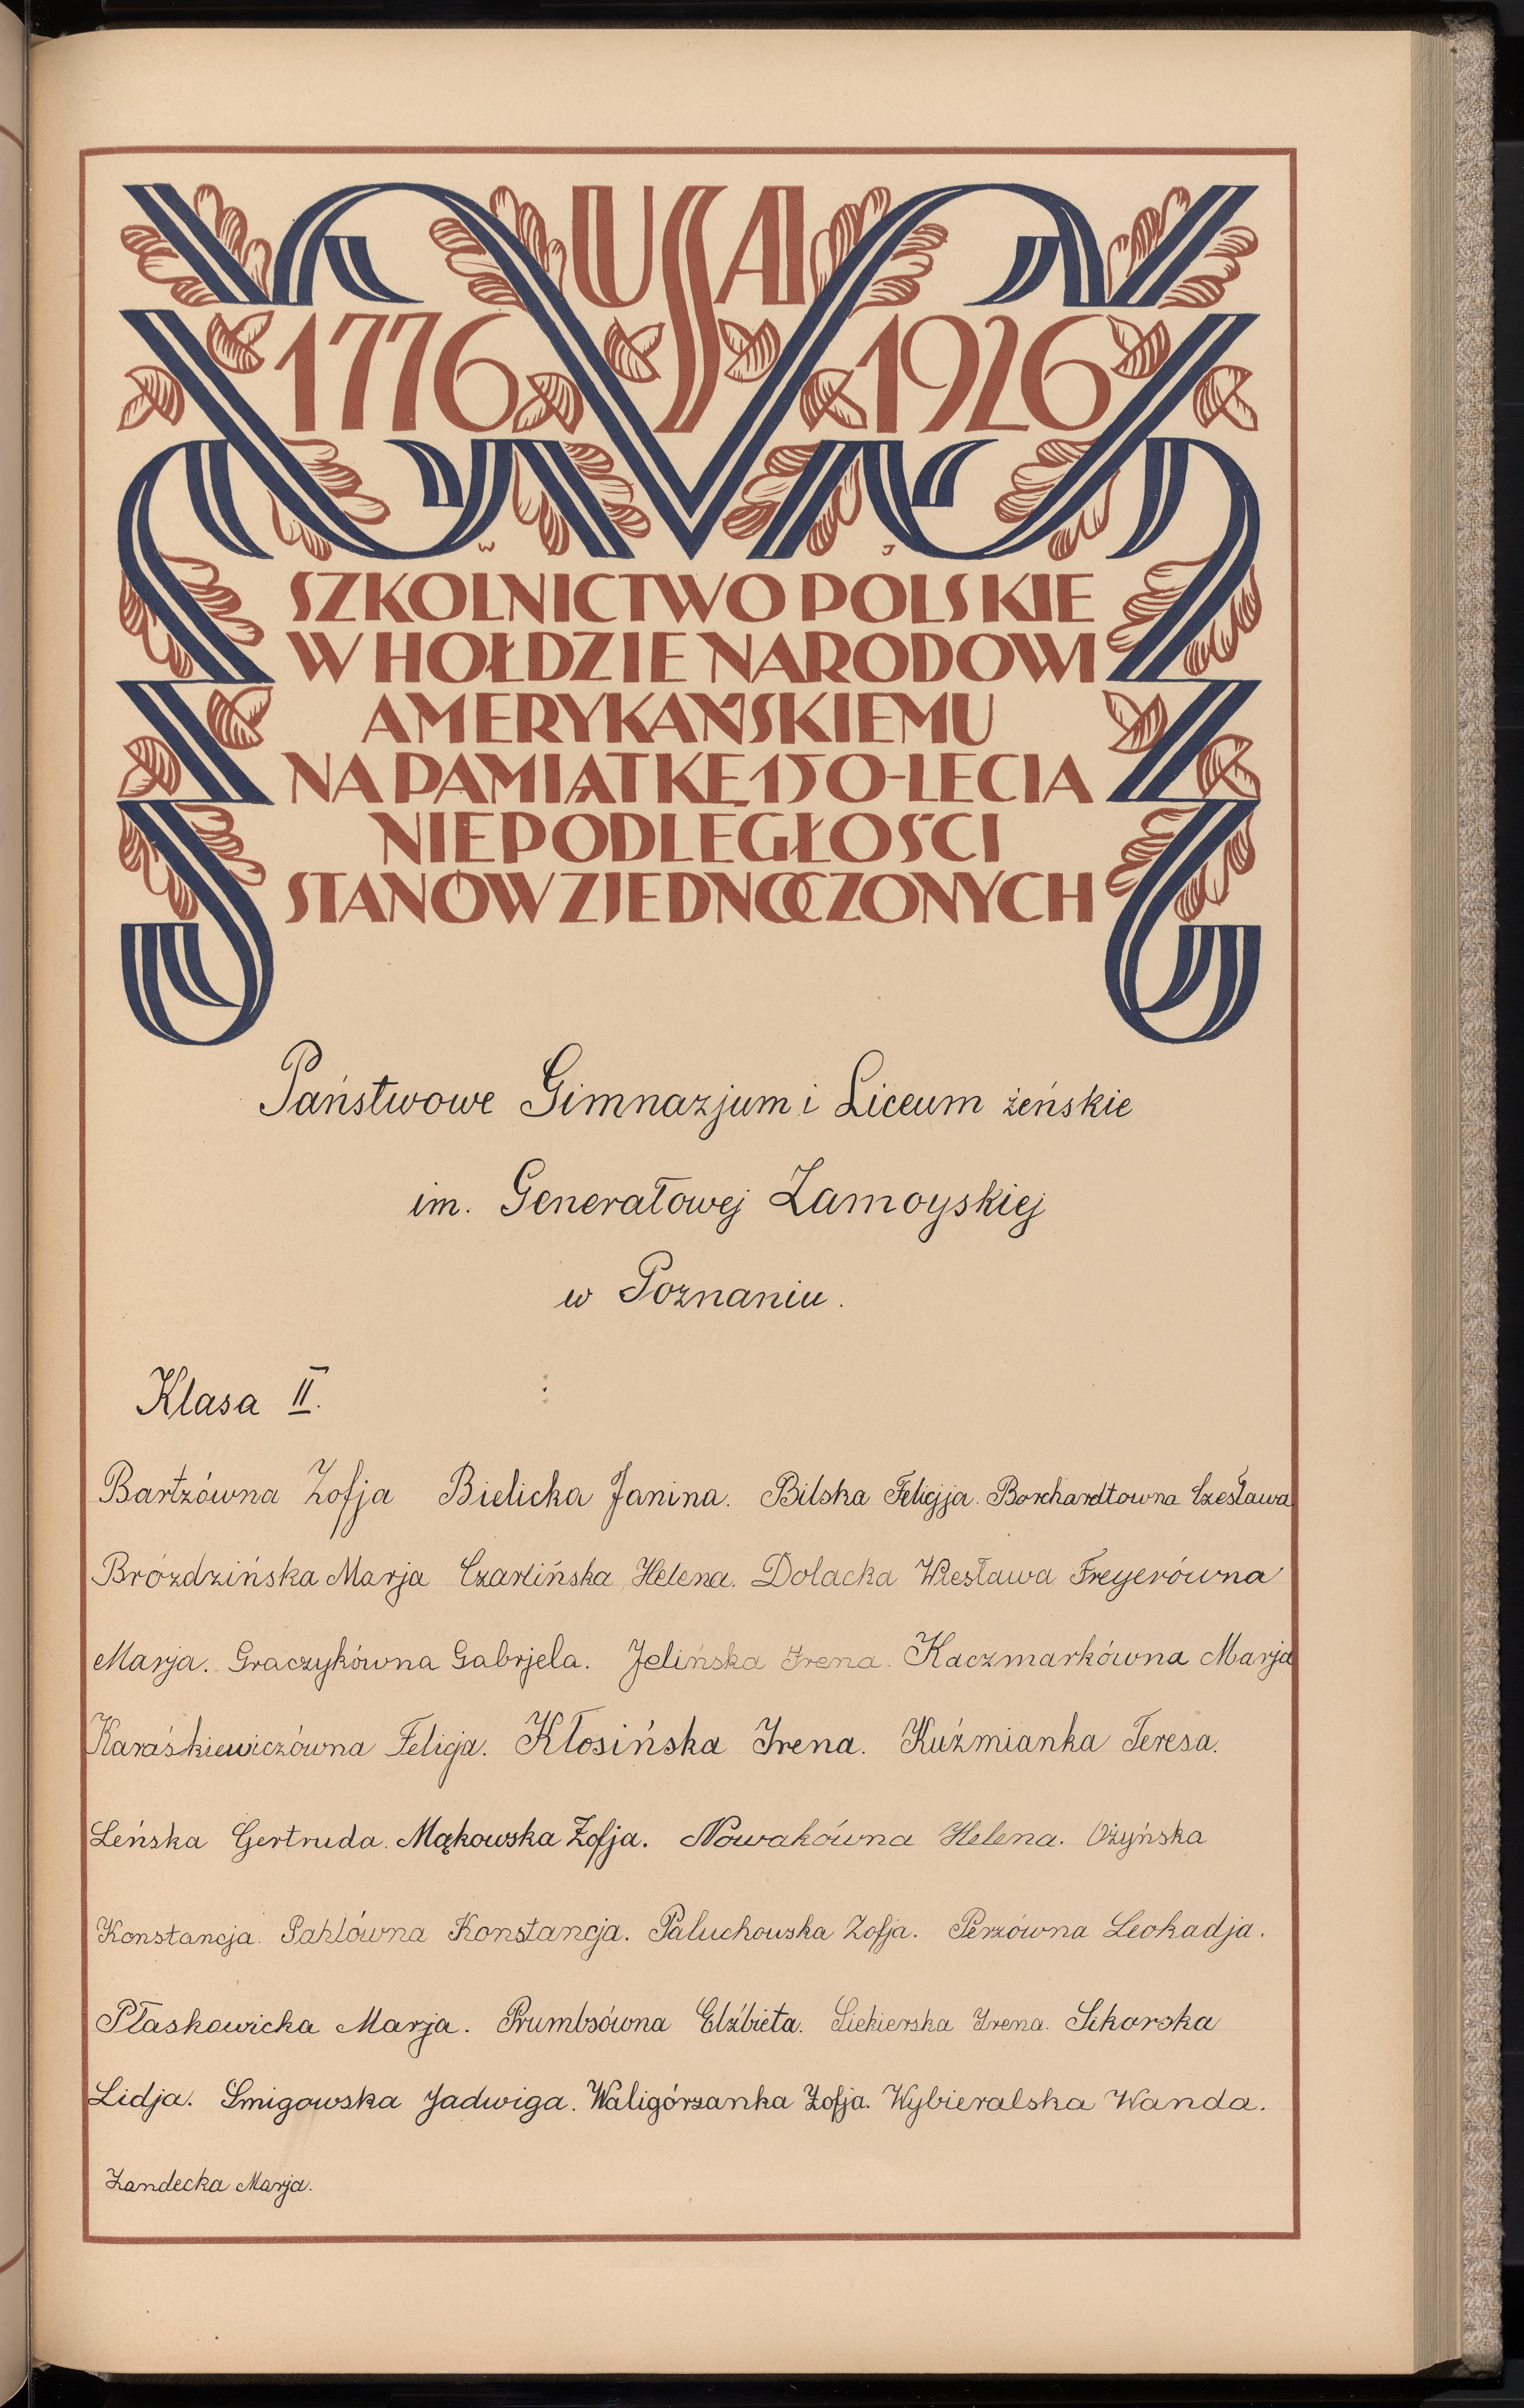 USA
1776 1926
W J
SZKOLNICTWO POLSKIE
W HOŁDZIE NARODOWI
AMERYKAŃSKIEMU
NA PAMIĄTKĘ 150-LECIA
NIEPODLEGŁOŚCI
STANÓW ZJEDNOCZONYCH
Państwowe Gimnazjum i Liceum żeńskie
im. Generałowej Zamoyskiej
w Poznaniu.
Klasa II.
Bartzówna Zofja Bielicka Janina. Bilska Felicjja. Borchardtowna Czesława
Bróździńska Marja Czarlińska Helena. Dolacka Wiesława Freyerówna
Marja. Graczykówna Gabrjela. Jelińska Irena. Kaczmarkówna Marja
Karaśkiewiczówna Felicja. Kłosińska Irena. Kuźmianka Teresa.
Leńska Gertruda. Mąkowska Zofja. Nowakówna Helena. Ożyńska
Konstancja. Pahlówna Konstancja. Paluchowska Zofja. Perzówna Leokadja.
Płaskowicka Marja. Prumbsówna Elżbieta. Siekierska Irena. Sikorska
Lidja. Śmigowska Jadwiga. Waligórzanka Zofja. Wybieralska Wanda.
Żandecka Marja.